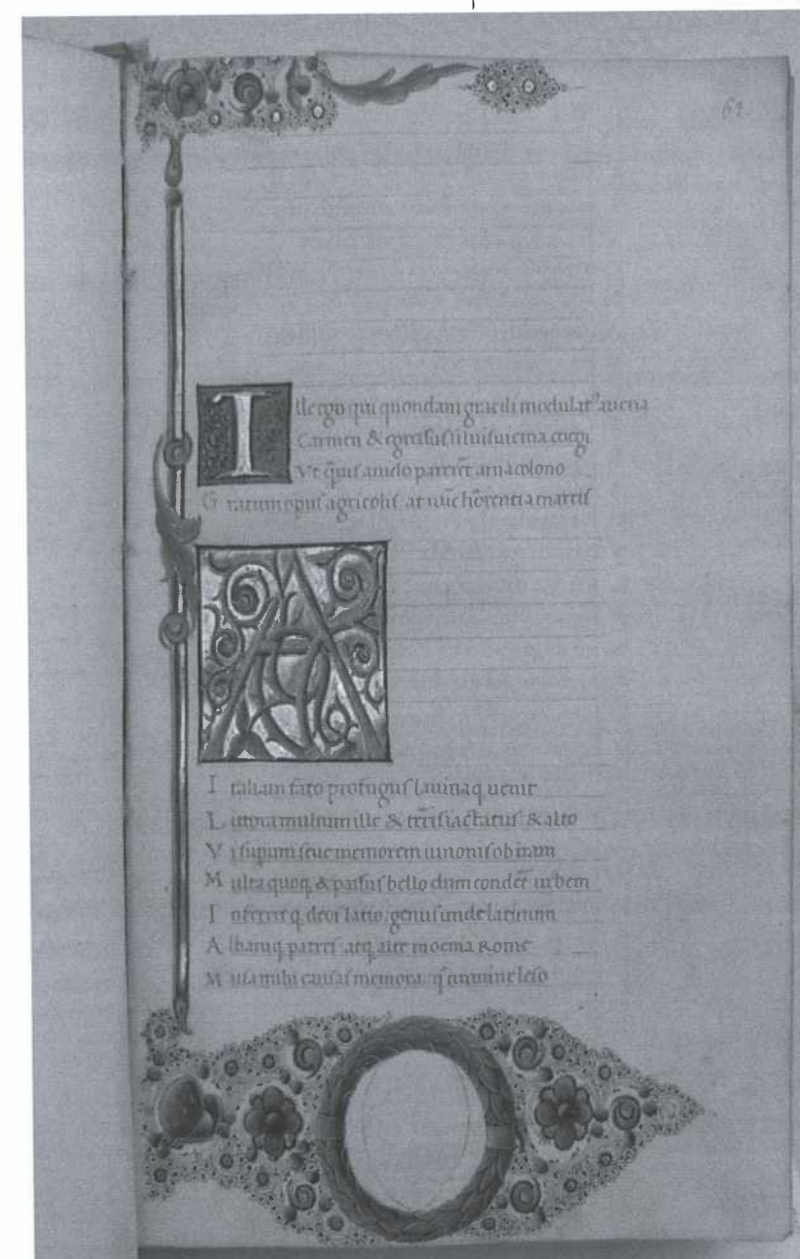 61
Ille ego qui quondam gracili modulat⁹ auena
Carmen & egressus siluis uicina coegi
Vt q̃uis auido pareret̃ arua colono
Gratum opus agricolis at nũc horrentia martis
A
Italiam fato profugus lauinaq uenit
Littora multum ille & terris iactatus & alto
Vi supum seue memorem iunonis ob iram
Multa quoq & passus bello dum conderet̃ urbem
Inferretq deos latio. genus unde latinum
Albaniq patres atq alte moenia Rome
Musa mihi causas memora. q̃ numine leso